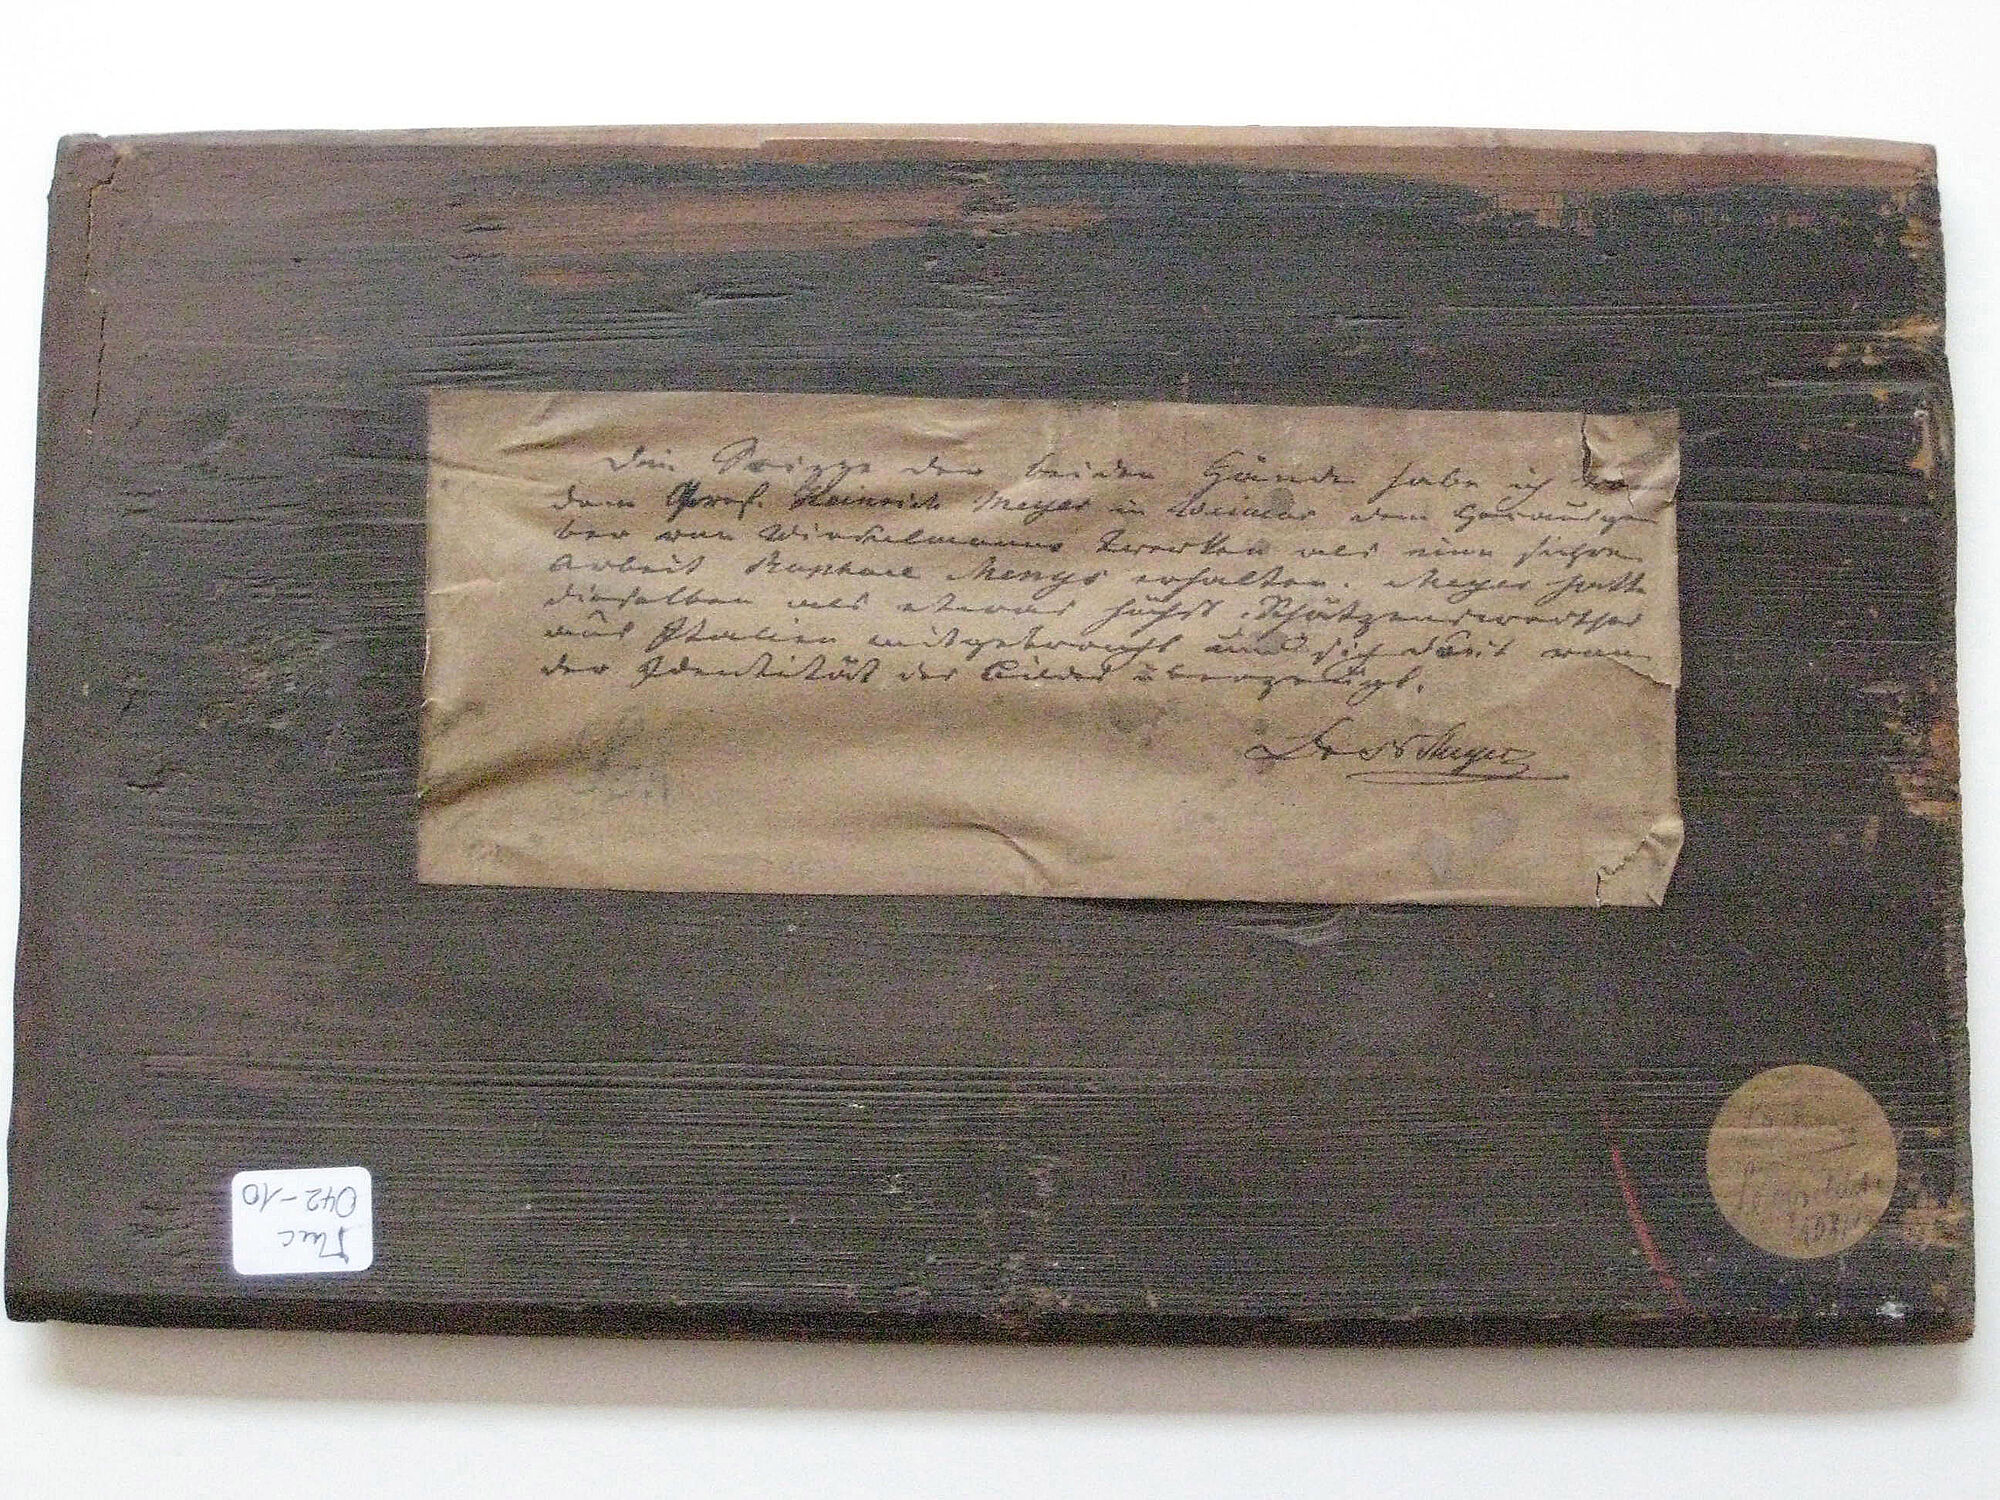 Die Skizze der beiden Hände habe ich von
dem Prof. Heinrich Meyer in Weimar dem Herausge
ber von Winckelmanns Werken als eine sichre
Arbeit Raphael Mengs erhalten. Meyer hatte
dieselben als etwas höchst Schätzenswerthes
aus Italien mitgebracht und sich dort von
der Identität des Bildes überzeugt.
Dr. Meyer
Muc
042-10